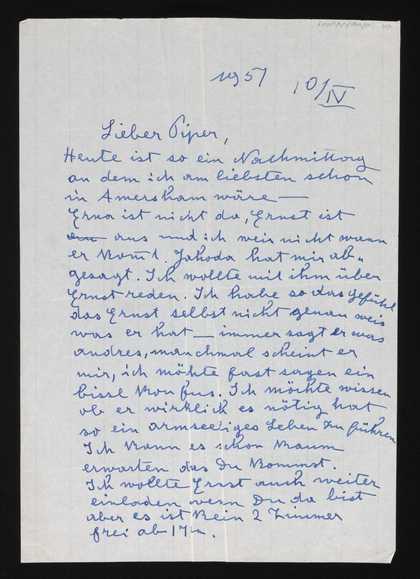 1951 10/IV
Lieber Piper,
Heute ist so ein Nachmittag
an dem ich am liebsten schon
in Amersham wäre —
Erna ist nicht da, Ernst ist
aus und ich weis nicht wann
er komt. Jakoda hat mir ab-
gesagt. Ich wollte mit ihm über
Ernst reden. Ich habe so das gefühl
das Ernst selbst nicht genau weis
was er hat — immer sagt er was
andres, manchmal scheint er
mir, ich möhte fast sagen ein
bissl konfus. Ich möchte wissen
ob er wirklich es nötig hat
so ein armseeliges Leben zu führen
Ich kann es schon kaum
erwarten das Du kommst.
Ich wollte Ernst auch weiter
einladen wenn Du da bist
aber es ist kein 2 Zimmer
frei ab 17n.